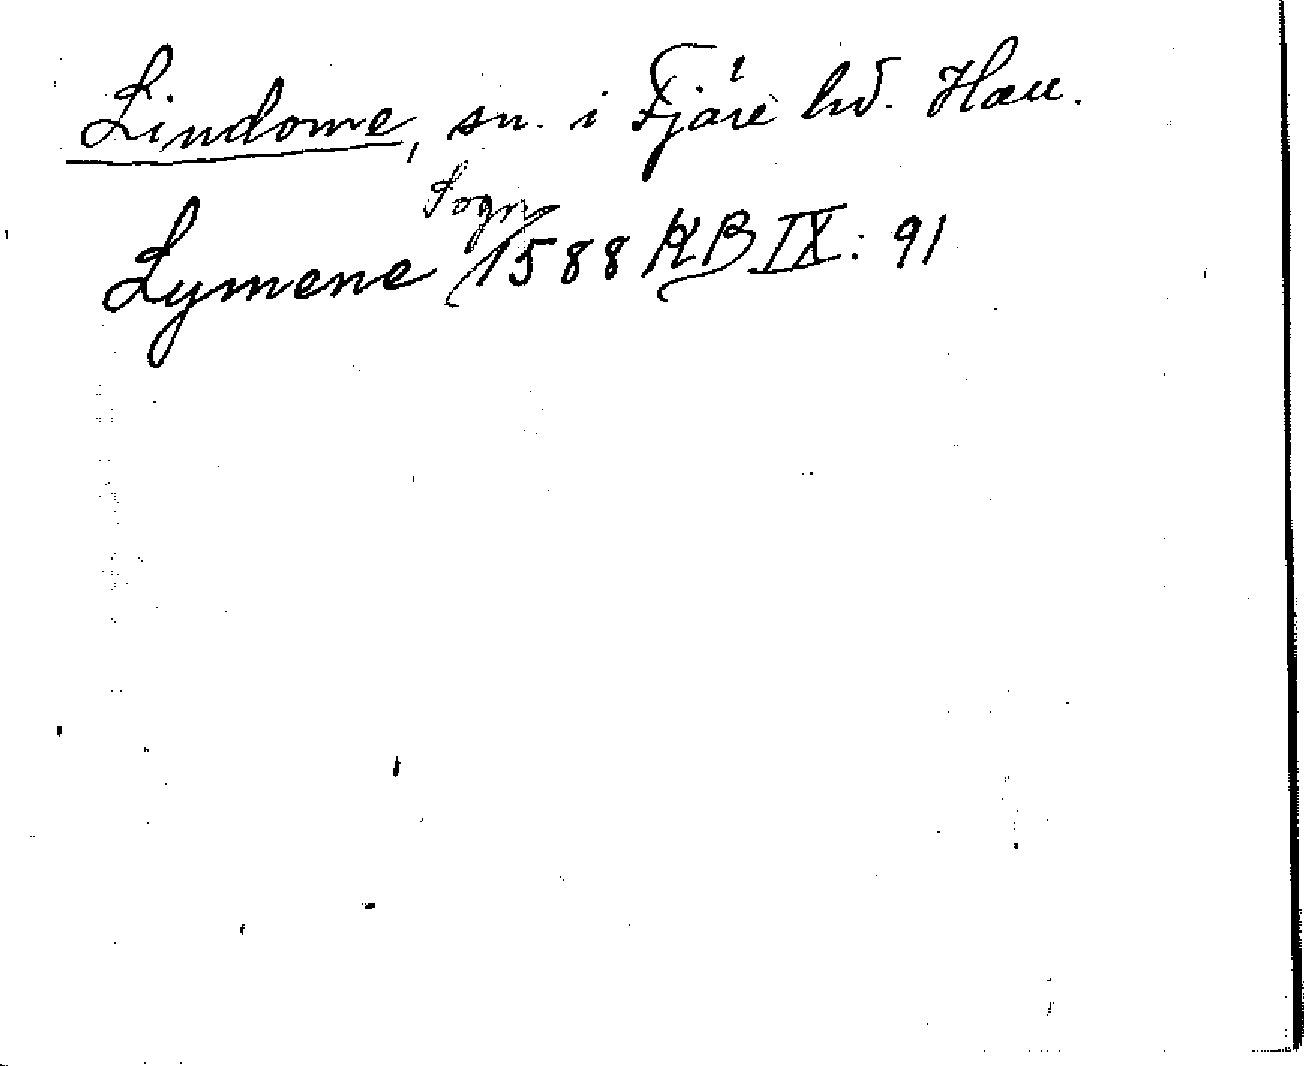 Lindome, sn. i Fjäre hd. Hall.
Sogn
Lymene 1588 KB IX: 91